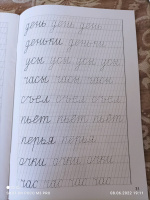 день день день
деньки деньки
усы усы усы усы
часы часы часы
съел съел съел
пьёт пьёт пьёт
перья перья
очки очки очки
час час час час